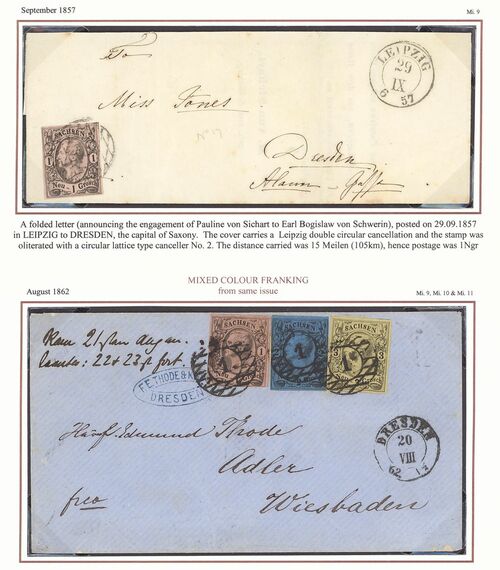 September 1857
Mi. 9
To
Miss Jones
No 17
Dresden
LEIPZIG
29
IX
6 57
SACHSEN
1 1
Neu- 1 Grosch.
A folded letter (announcing the engagement of Pauline von Sichart to Earl Bogislaw von Schwerin), posted on 29.09.1857
in LEIPZIG to DRESDEN, the capital of Saxony. The cover carries a Leipzig double circular cancellation and the stamp was
obliterated with a circular lattice type canceller No. 2. The distance carried was 15 Meilen (105km), hence postage was 1Ngr
MIXED COLOUR FRANKING
from same issue
August 1862
Mi. 9, Mi. 10 & Mi. 11
22 & 23st fort.
DRESDEN
SACHSEN
1
SACHSEN
SACHSEN
3
DRESDEN
20
VIII
62
Edmund Thode
Adler
Wiesbaden